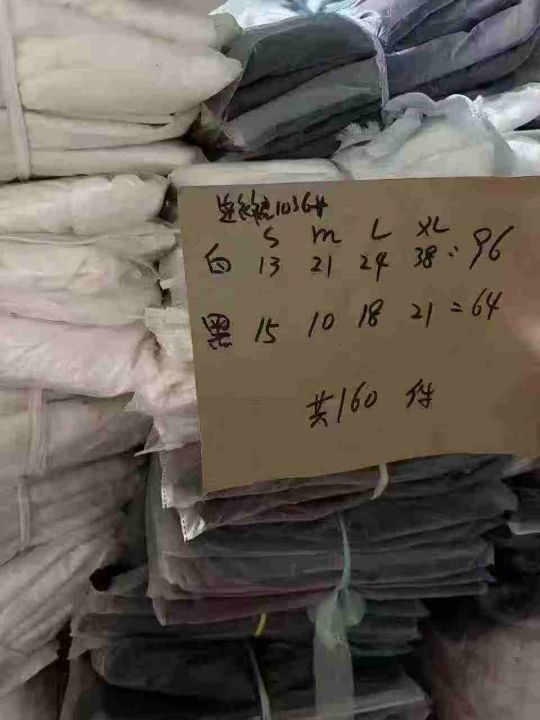 连衣裙1036#
S M L XL
白 13 21 24 38 = 96
黑 15 10 18 21 = 64
共160 件